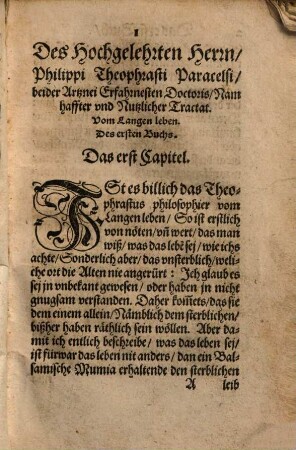 1
Des Hochgelehrten Herrn/
Philippi Theophrasti Paracelsi/
beider Artznei Erfahrnesten Doctoris/ Nam
haffter vnd Nutzlicher Tractat.
Vom Langen leben.
Des ersten Buchs.
Das erst Capitel.
ISt es billich das Theo-
phrastus philosophier vom
Langen leben/ So ist erstlich
von nöten/ vñ wert/ das man
wiß/ was das lebē sej/ wie ichs
achte/ Sonderlich aber/ das vnsterblich/ weli-
che ort die Alten nie angerürt: Ich glaub es
sej jn vnbekant gewesen/ oder haben jn nicht
gnugsam verstanden. Daher kom̃ets/ das sie
dem einem allein/ Nämblich dem sterblichen/
bißher haben räthlich sein wöllen. Aber da-
mit ich entlich beschreibe/ was das leben sej/
ist fürwar das leben nit anders/ dan ein Bal-
samische Mumia erhaltende den sterblichen
A leib